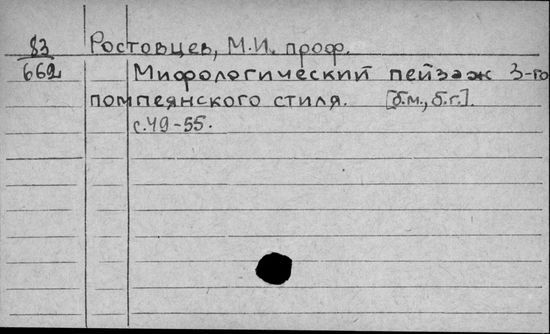 83 Ростовцев, М.И. проф.
662 Мифологический пейзаж 3-го
помпеянского стиля. [б.м., б.г.].
с.49-55.